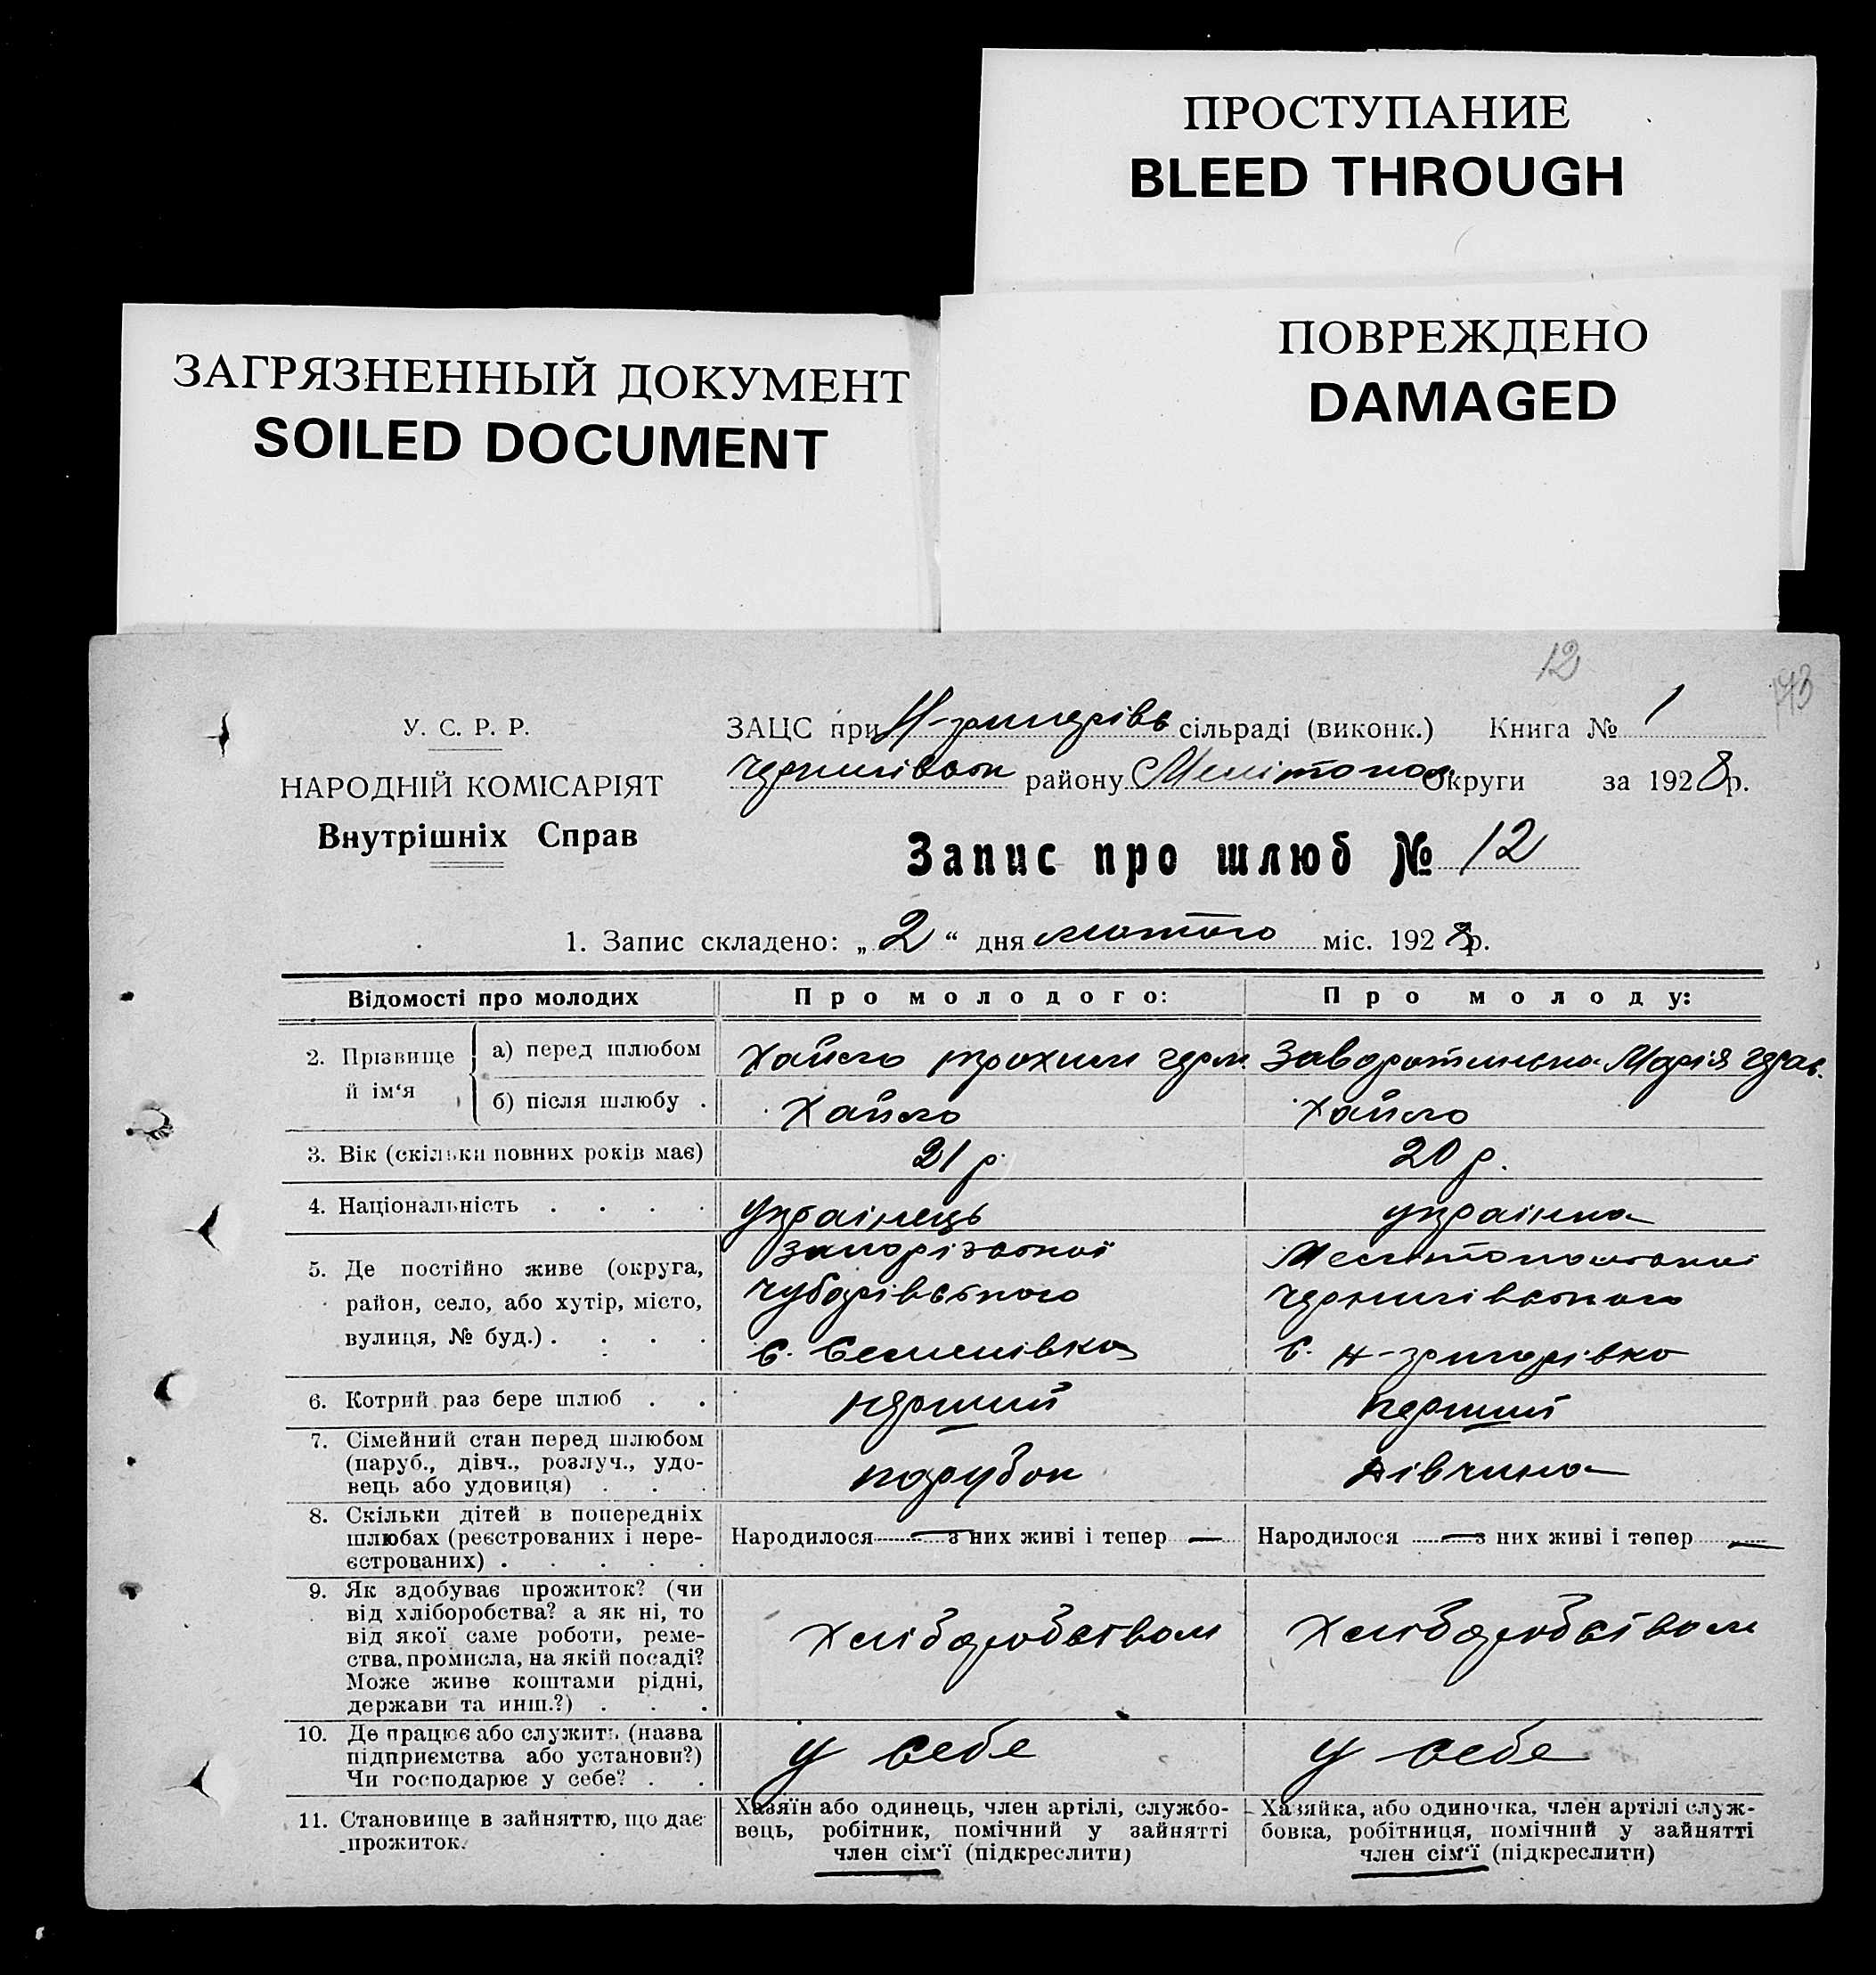 ПРОСТУПАНИЕ
BLEED THROUGH
ПОВРЕЖДЕНО
DAMAGED
ЗАГРЯЗНЕННЫЙ ДОКУМЕНТ
SOILED DOCUMENT
12
У. С. Р. Р.
НАРОДНІЙ КОМІСАРІЯТ
Внутрішніх Справ
ЗАЦС при Н-григорівс сільраді (виконк.) Книга № 1
Чернигівськ району Мелітопол. Округи за 1928 р.
Запис про шлюб № 12
1. Запис складено: „2“ дня лютого міс. 1928 р.
Відомості про молодих
Про молодого:
Про молоду:
2. Прізвище й ім‘я
а) перед шлюбом
Хайло Трохим Гер.
Заворотинська Марія Герас.
б) після шлюбу .
Хайло
Хайло
3. Вік (скільки повних років має)
21 р.
20 р.
4. Національність . . . .
українець
українка
5. Де постійно живе (округа,
район, село, або хутір, місто,
вулиця, № буд.) . . . .
Запорізької
Чубарівського
с. Семенівка
Мелітопольської
Чернигівського
с. Н-григорівка
6. Котрий раз бере шлюб . .
перший
перший
7. Сімейний стан перед шлюбом
(паруб., дівч., розлуч., удо-
вець або удовиця) . . .
парубок
дівчина
8. Скільки дітей в попередніх
шлюбах (реєстрованих і нере-
єстрованих) . . . . .
Народилося — з них живі і тепер —
Народилося — з них живі і тепер —
9. Як здобуває прожиток? (чи
від хліборобства? а як ні, то
від якої саме роботи, реме-
ства, промисла, на якій посаді?
Може живе коштами рідні,
держави та инш.?) . . .
Хліборобством
Хліборобством
10. Де працює або служить (назва
підприємства або установи?)
Чи господарює у себе? . .
у себе
у себе
11. Становище в зайняттю, що дає
прожиток.
Хазяїн або одинець, член артілі, службо-
вець, робітник, помічний у зайнятті
член сім‘ї (підкреслити)
Хазяйка, або одиночка, член артілі служ-
бовка, робітниця, помічний у зайнятті
член сім‘ї (підкреслити)